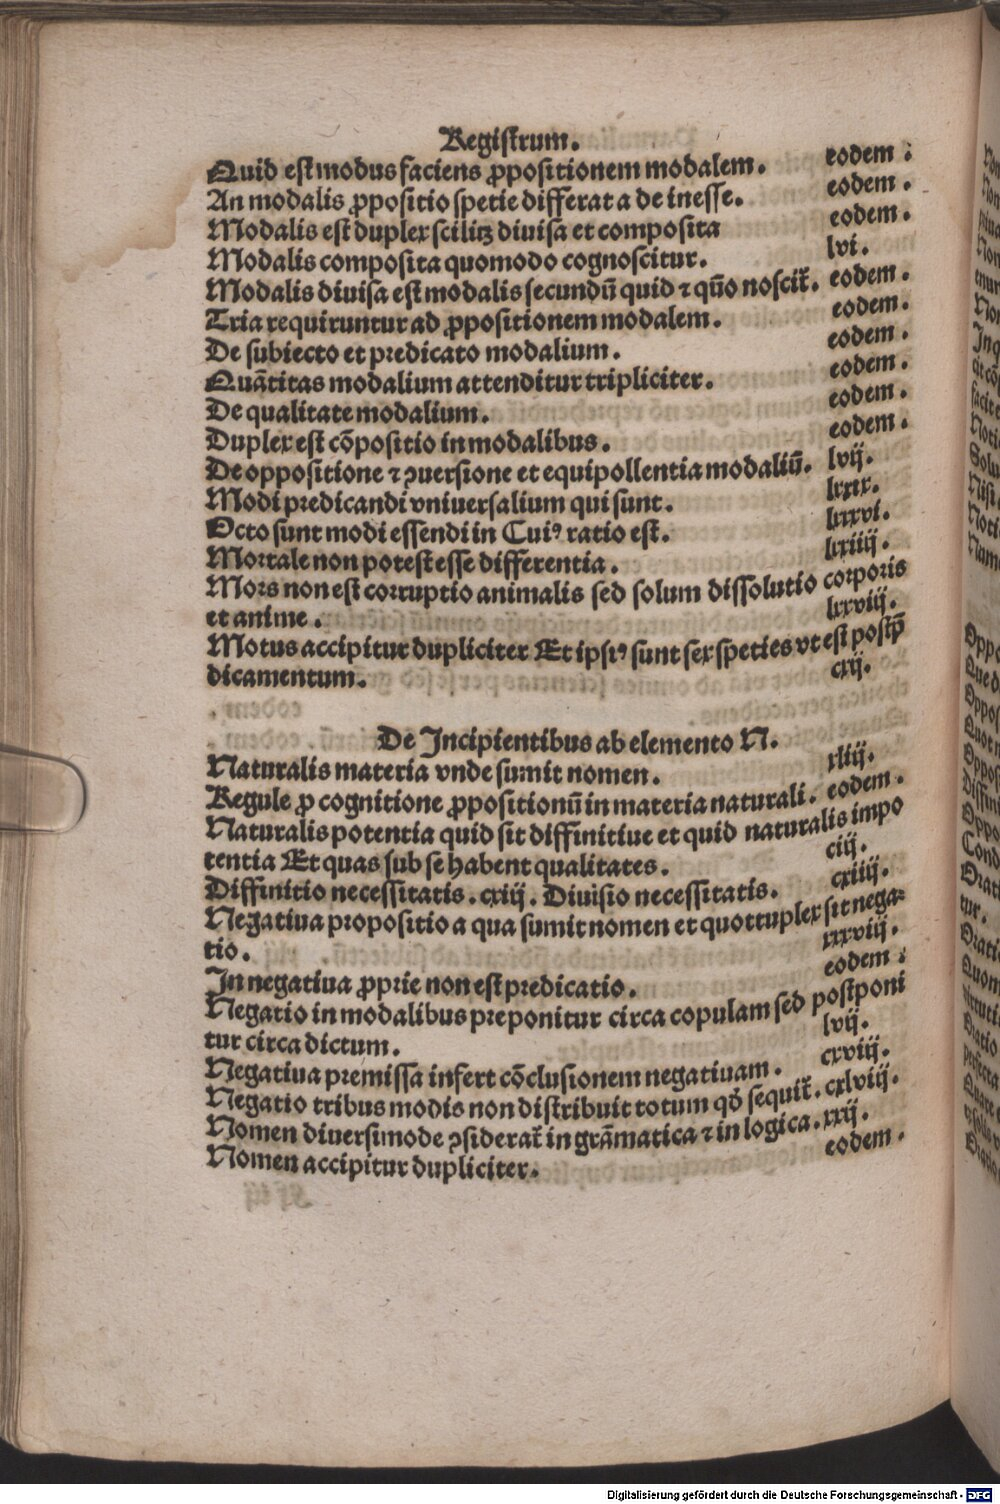 Registrum.
Quid est modus faciens ꝓpositionem modalem. eodem :
An modalis ꝓpositio spetie differat a de inesse. eodem .
Modalis est duplex scilicꝫ diuisa et composita eodem .
Modalis composita quomodo cognoscitur. lvi .
Modalis diuisa est modalis secundū quid ⁊ qūo noscit̃. eodem .
Tria requiruntur ad ꝓpositionem modalem . eodem .
De subiecto et predicato modalium . eodem .
Quātitas modalium attenditur tripliciter. eodem .
De qualitate modalium . eodem .
Duplex est cōpositio in modalibus . eodem .
De oppositione ⁊ ꝯuersione et equipollentia modaliū. lvij .
Modi predicandi vniuersalium qui sunt . lxix .
Octo sunt modi essendi in Cuiꝰ ratio est . lxxvi .
Mortale non potest esse differentia . lxiiij .
Mors non est corruptio animalis sed solum dissolutio corporis
et anime . lxxviij .
Motus accipitur dupliciter Et ipsiꝰ sunt sex speties vt est postp̄
dicamentum . cxij .
De Incipientibus ab elemento N .
Naturalis materia vnde sumit nomen . xliij .
Regule ꝓ cognitione ꝓpositionū in materia naturali . eodem .
Naturalis potentia quid sit diffinitiue et quid naturalis impo
tentia Et quas sub se habent qualitates . ciij .
Diffinitio necessitatis . cxiij . Diuisio necessitatis . cxiiij .
Negatiua propositio a qua sumit nomen et quottuplex sit nega⸗
tio . xxxviij .
In negatiua ꝓprie non est predicatio . eodem :
Negatio in modalibus preponitur circa copulam sed postponi
tur circa dictum . lvij .
Negatiua premissa infert cōclusionem negatiuam . cxviij .
Negatio tribus modis non distribuit totum qd̕ sequit̃ . cxlviij .
Nomen diuersimode ꝯsiderat̃ in grāmatica ⁊ in logica . xxij .
Nomen accipitur dupliciter . eodem .
Digitalisierung gefördert durch die Deutsche Forschungsgemeinschaft - DFG